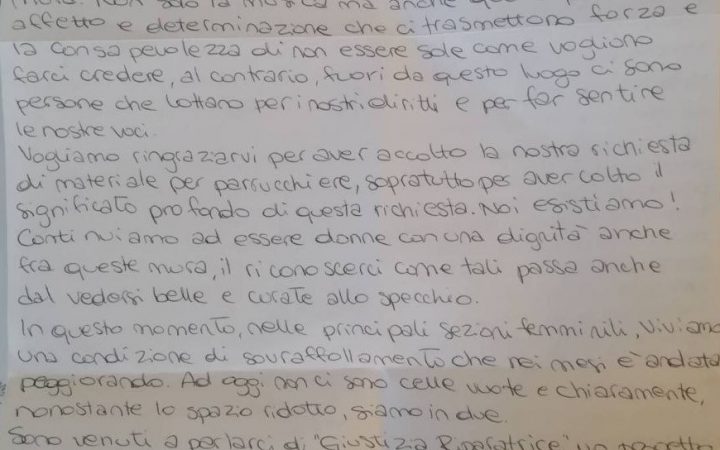 Non solo la musica ma anche
affetto e determinazione che ci trasmettono forza e
la consapevolezza di non essere sole come vogliono
farci credere, al contrario, fuori da questo luogo ci sono
persone che lottano per i nostri diritti e per far sentire
le nostre voci.
Vogliamo ringraziarvi per aver accolto la nostra richiesta
di materiale per parrucchiere, sopratutto per aver colto il
significato profondo di questa richiesta. Noi esistiamo!
Continuiamo ad essere donne con una dignità anche
fra queste mura, il riconoscerci come tali passa anche
dal vedersi belle e curate allo specchio.
In questo momento, nelle principali sezioni femminili, viviamo
una condizione di sovraffollamento che nei mesi è andata
peggiorando. Ad oggi non ci sono celle vuote e chiaramente,
nonostante lo spazio ridotto, siamo in due.
Sono venuti a parlarci di "Giustizia Riparatrice" un progetto